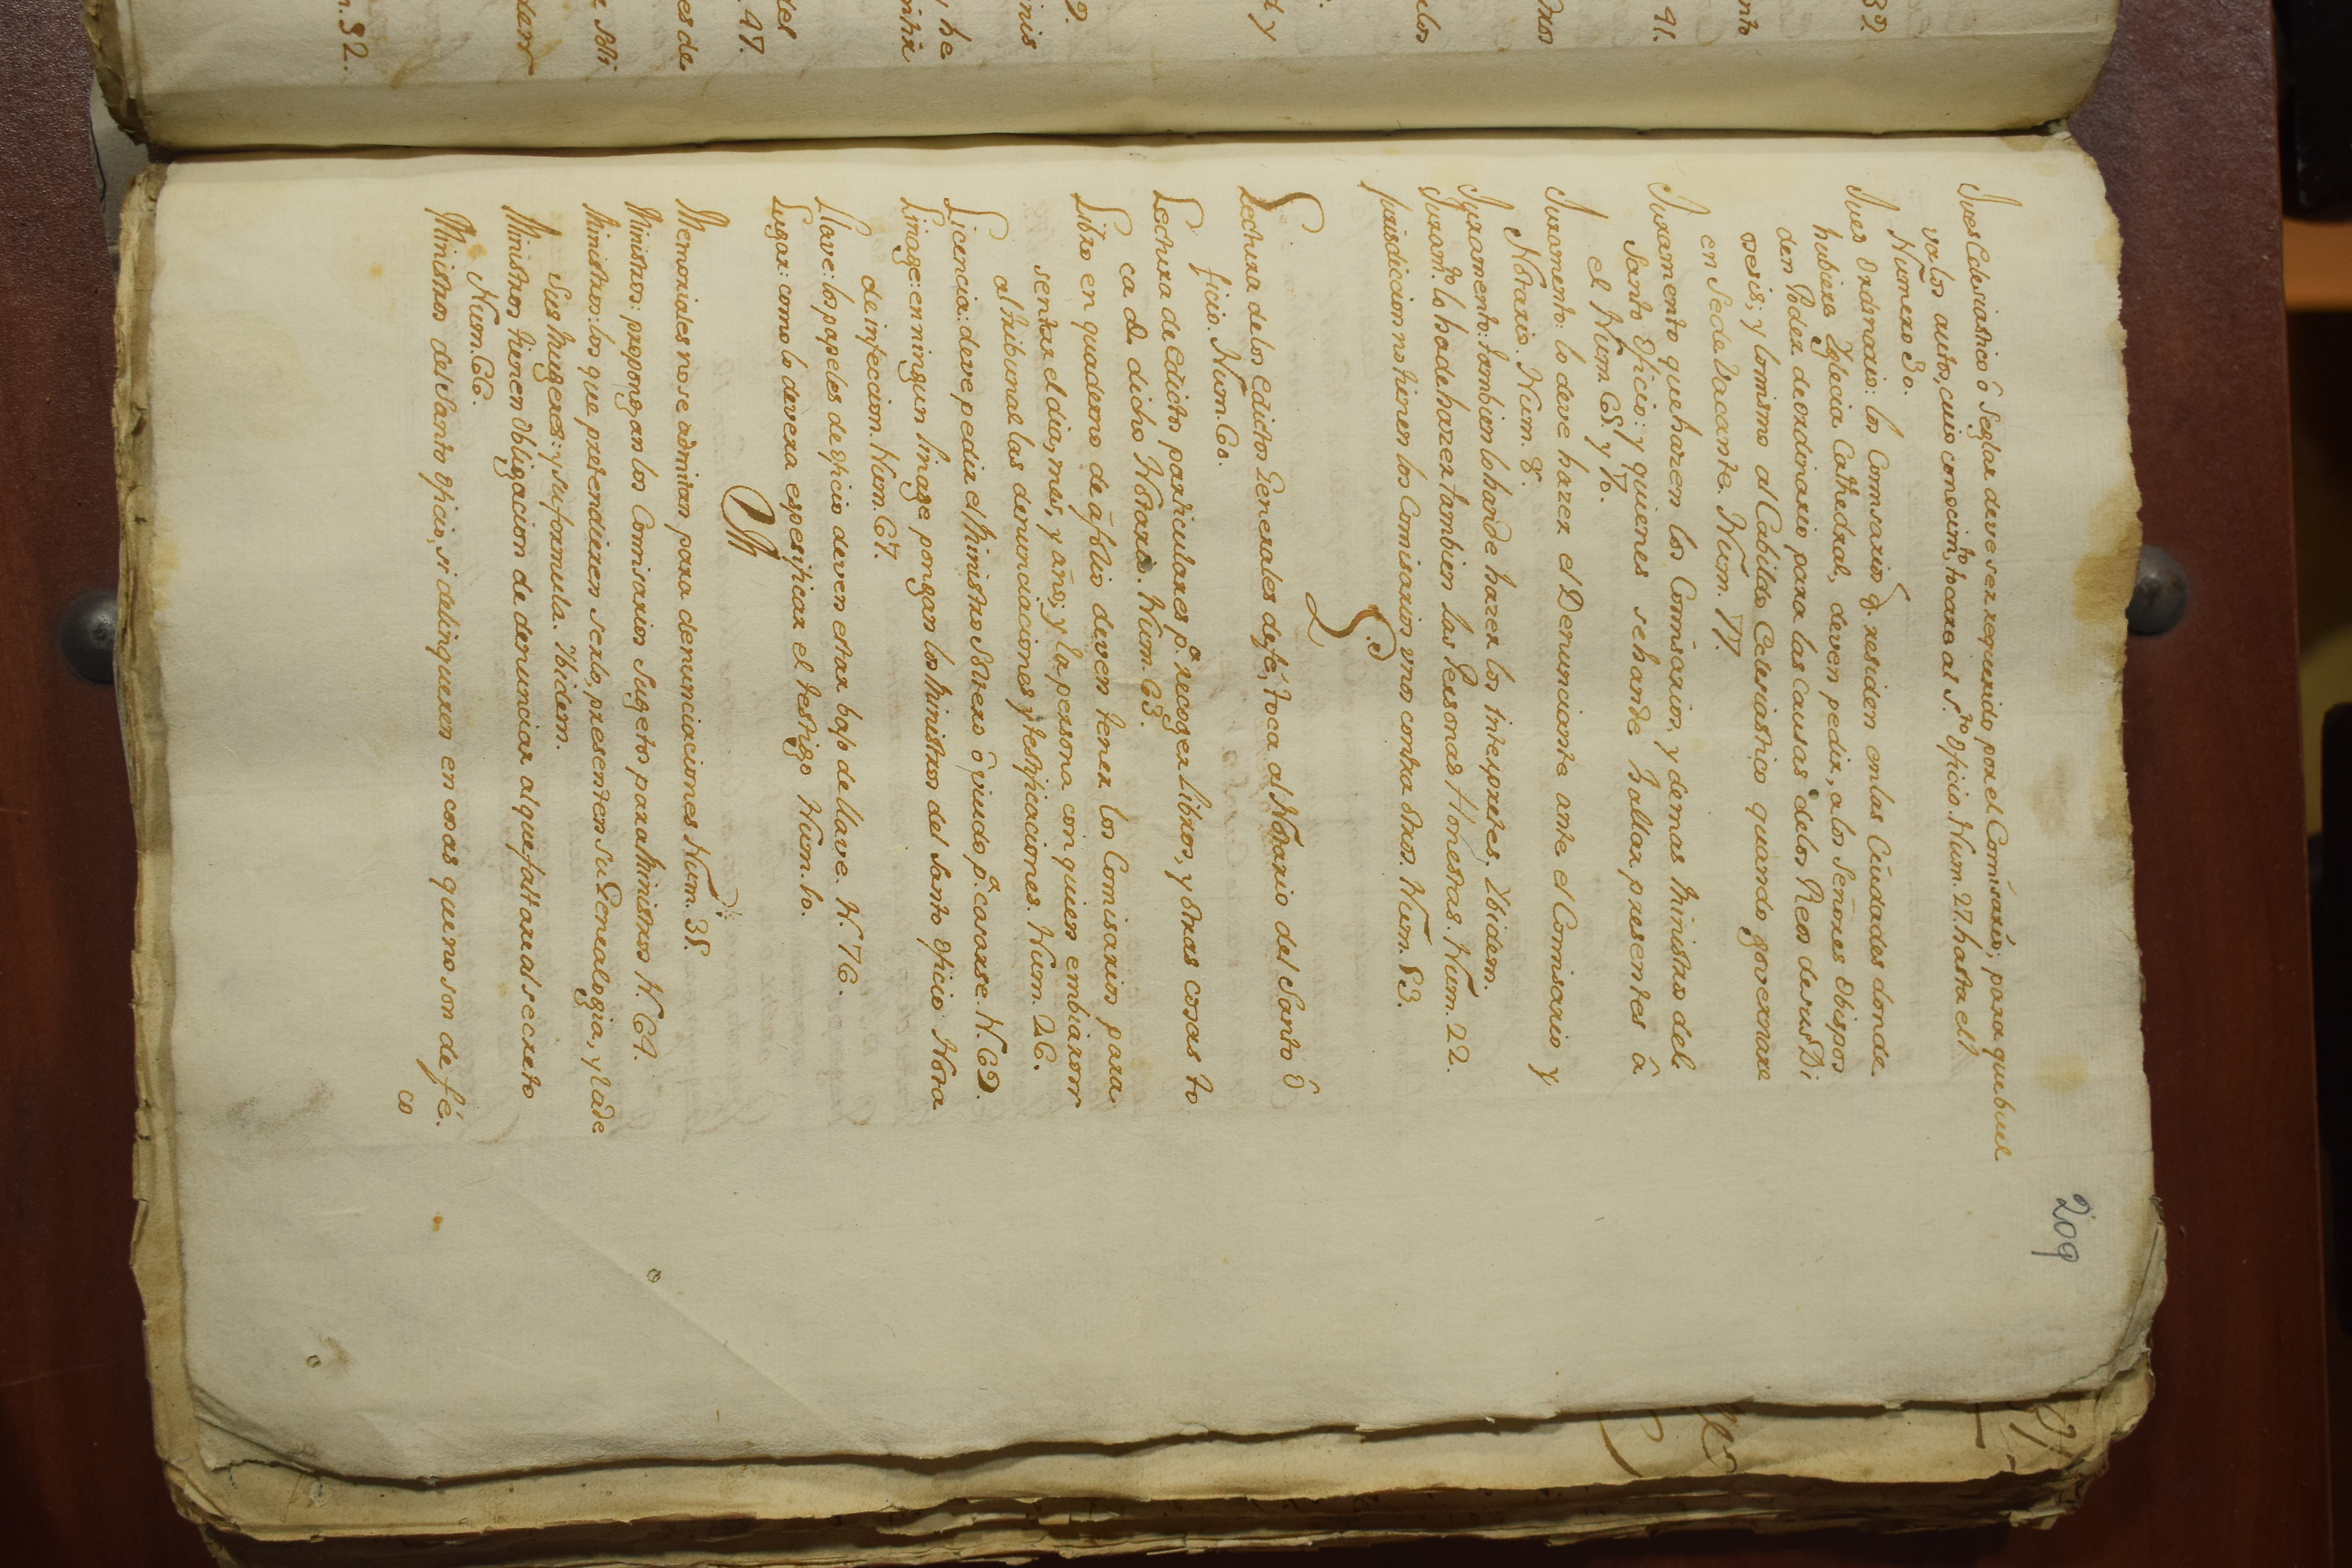 209
Jues Eclesiastico ô Seglar deve ser requerido por el Comisario; para que buel
va los autos, cuio conocim.to tocare al S.to Oficio. Num. 27. hasta el
Numero 30.
Jues Ordinario: los Comisarios q. residen en las Ciudades donde
hubiere Yglecia Cathedral, deven pedir, a los Señores Obispos
den Poder de ordinario para las Causas de los Reos de sus Di
osesis; y lo mismo al Cabildo Eclesiastico quando governare
en Sede Vacante. Num. 77.
Juramento que hazen los Comisarios, y demas Ministros del
Santo Oficio: y quienes se han de hallar presentes â
el Num. 65. y 70.
Juramento: lo deve hazer el Denunciante ante el Comisario y
Notario. Num. 8.
Juramento: tambien lo han de hazer los Interpretes. Ibidem.
Juram.to lo ha de hazer tambien las Personas Honestas. Num. 22.
jurisdicion no tienen los Comisarios unos contra otros. Num. 83.
L
Lectura de los Edictos Generales de fé, toca al Notario del Santo O
ficio. Num. 60.
Lectura de Edictos particulares p.a recoger Libros, y otras cosas to
ca a dicho Notario. Num. 63.
Libro en quaderno de â folio deven tener los Comisarios para
sentar el dia, mes, y año; y la persona con quien embiaron
al tribunal las denunciaciones y testificaciones. Num. 26.
Licencia: deve pedir el Ministro Soltero ô viudo p.a casarse. N. 69.
Linage: en ningun linage pongan los Ministros del Santo Oficio Nota
de infeccion. Num. 67.
Llave: los papeles de oficio deven estar bajo de llave. N. 76.
Lugar: como lo devera espesificar el testigo Num. 10.
M
Memoriales no se admitan para denunciaciones Num. 35.
Ministros: propongan los Comisarios Sugetos para Ministros N. 64.
Ministros: los que pretendieren serlo, presenten su Genealogia, y la de
Sus Mugeres: y su formula. Ibidem.
Ministros tienen Obligacion de denunciar al que faltare al secreto
Num. 66.
Ministros del Santo Oficio, si delinqueren en cosas que no son de fé.
co